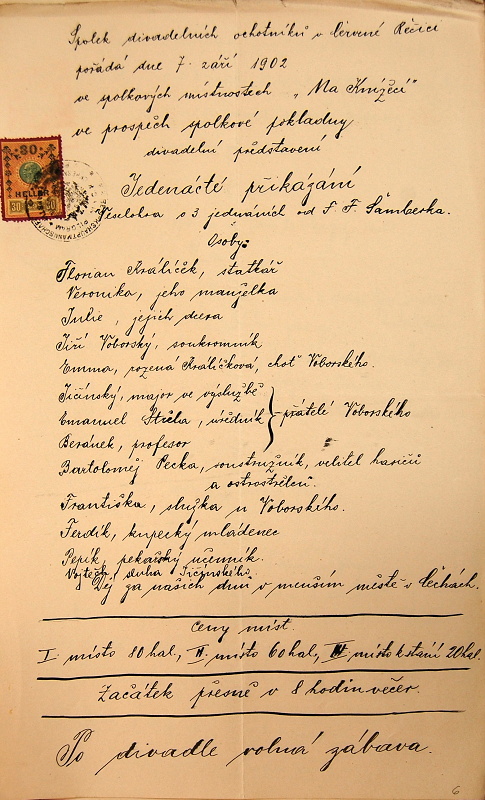 Spolek divadelních ochotníků v Červené Řečici
pořádá dne 7. září 1902
ve spolkových místnostech „Na Knížecí“
ve prospěch spolkové pokladny
divadelní představení
Jedenácté přikázání
Veselohra o 3 jednáních od F. F. Šamberka.
Osoby:
Florian Králíček, statkář
Veronika, jeho manželka
Julie, jejich dcera
Jiří Voborský, soukromník
Emma, rozená Králíčková, choť Voborského.
Jičínský, major ve výslužbě
Emanuel Střela, úředník
přátelé Voborského
Beránek, profesor
Bartoloměj Pecka, soustružník, velitel hasičů
a ostrostřelců.
Františka, služka u Voborského.
Ferdík, kupecký mládenec
Pepík, pekařský učenník.
Vojtěch, sluha Jičínského.
Děj za našich dnů v menším městě v Čechách.
Ceny míst.
I. místo 80 hal., II. místo 60 hal., III. místo k stání 20 hal.
Začátek přesně v 8 hodin večer.
Po divadle volná zábava.
30
HELLER
30
6